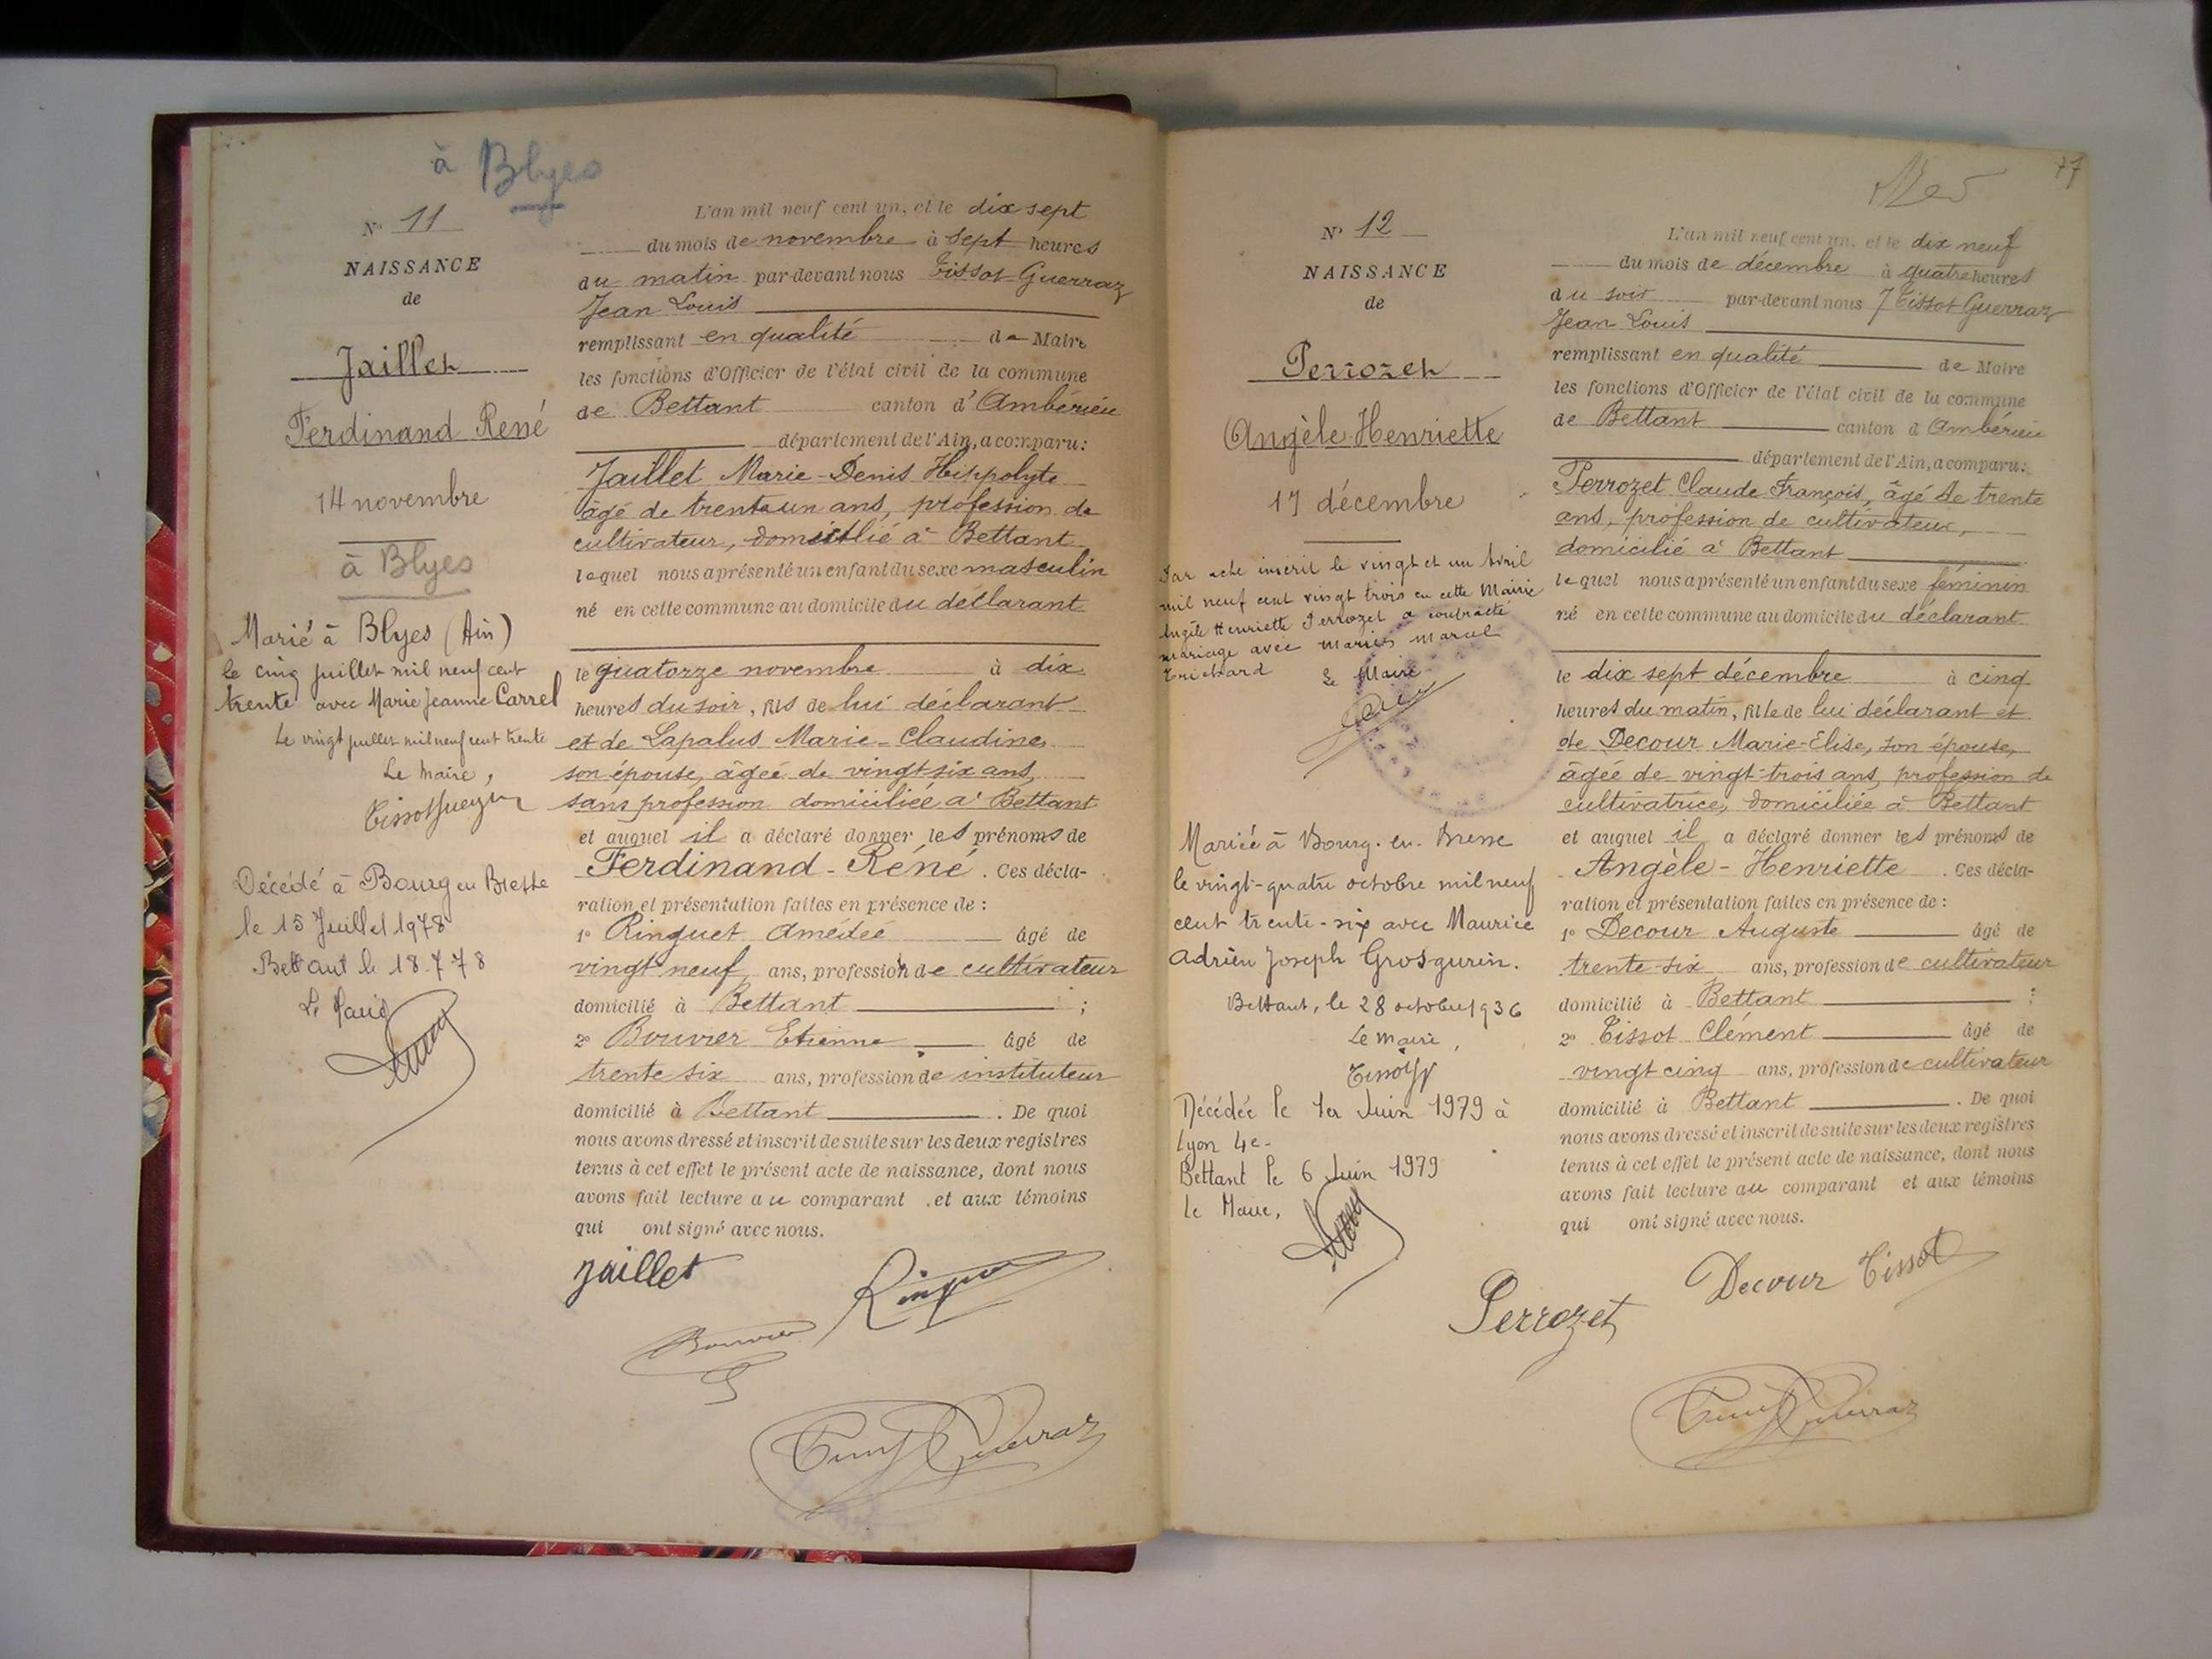 à Blyes
N° 11
NAISSANCE
de
Jaillet
Ferdinand René
14 novembre
à Blyes
Marié à Blyes (Ain)
le cinq juillet mil neuf cent
trente avec Marie Jeanne Carrel
Le vingt juillet mil neuf cent trente
Le Maire,
Décédé à Bourg en Bresse
le 15 Juillet 1978
Bettant le 18.7.78
Le Maire
L'an mil neuf cent un, et le dix sept
du mois de novembre à sept heures
du matin par-devant nous Tissot Guerraz
Jean Louis
remplissant en qualité de Maire
les fonctions d'Officier de l'état civil de la commune
de Bettant canton d'Ambérieu
département de l'Ain, a comparu:
Jaillet Marie-Denis Hippolyte
âgé de trente un ans, profession de
cultivateur, domicilié à Bettant
lequel nous a présenté un enfant du sexe masculin
né en cette commune au domicile du déclarant
le quatorze novembre à dix
heures du soir, fils de lui déclarant
et de Lapalus Marie-Claudine
son épouse, âgée de vingt six ans,
sans profession domiciliée à Bettant
et auquel il a déclaré donner les prénoms de
Ferdinand-Réné. Ces décla-
ration et présentation faites en présence de :
1° Rinquet Amédée âgé de
vingt neuf ans, profession de cultivateur
domicilié à Bettant ;
2° Bouvier Etienne âgé de
trente six ans, profession de instituteur
domicilié à Bettant . De quoi
nous avons dressé et inscrit de suite sur les deux registres
tenus à cet effet le présent acte de naissance, dont nous
avons fait lecture au comparant . et aux témoins
qui ont signé avec nous.
Jaillet
Bouvier
77
N° 12
NAISSANCE
de
Perrozet
Angèle-Henriette
17 décembre
Par acte inscrit le vingt et un Avril
mil neuf cent vingt trois en cette Mairie
Angèle Henriette Perrozet a contracté
mariage avec Marius Marcel
Trichard
Le Maire
Mariée à Bourg-en-Bresse
le vingt-quatre octobre mil neuf
cent trente-six avec Maurice
Adrien Joseph Grosgurin.
Bettant, le 28 octobre 1936
Le Maire,
Décédée le 1er Juin 1979 à
Lyon 4e-
Bettant le 6 Juin 1979
Le Maire,
L'an mil neuf cent un, et le dix neuf
du mois de décembre à quatre heures
du soir par-devant nous Tissot Guerraz
Jean Louis
remplissant en qualité de Maire
les fonctions d'Officier de l'état civil de la commune
de Bettant canton d Ambérieu
département de l'Ain, a comparu:
Perrozet Claude François, âgé de trente
ans, profession de cultivateur,
domicilié à Bettant
lequel nous a présenté un enfant du sexe féminin
né en cette commune au domicile du déclarant
le dix sept décembre à cinq
heures du matin, fille de lui déclarant et
de Decour Marie-Elise, son épouse,
âgée de vingt-trois ans, profession de
cultivatrice, domiciliée à Bettant
et auquel il a déclaré donner les prénoms de
Angèle-Henriette . Ces décla-
ration et présentation faites en présence de :
1° Decour Auguste âgé de
trente-six ans, profession de cultivateur
domicilié à Bettant ;
2° Tissot Clément âgé de
vingt cinq ans, profession de cultivateur
domicilié à Bettant . De quoi
nous avons dressé et inscrit de suite sur les deux registres
tenus à cet effet le présent acte de naissance, dont nous
avons fait lecture au comparant et aux témoins
qui ont signé avec nous.
Decour Tissot
Perrozet